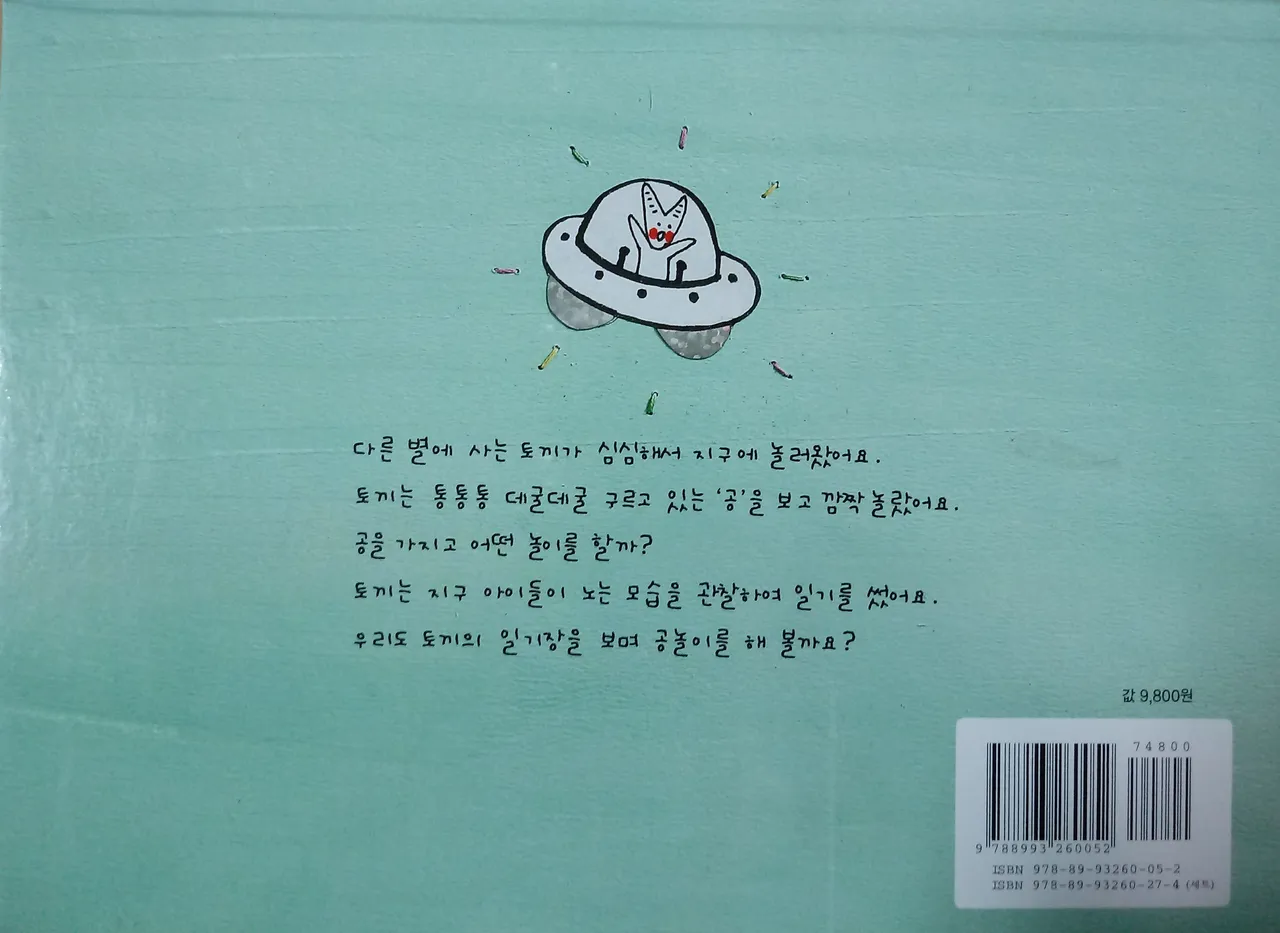 다른 별에 사는 토끼가 심심해서 지구에 놀러왔어요.
토끼는 통통통 데굴데굴 구르고 있는 '공'을 보고 깜짝 놀랐어요.
공을 가지고 어떤 놀이를 할까?
토끼는 지구 아이들이 노는 모습을 관찰하여 일기를 썼어요.
우리도 토끼의 일기장을 보며 공놀이를 해 볼까요?
값 9,800원
74800
9 788993 260052
ISBN 978-89-93260-05-2
ISBN 978-89-93260-27-4 (세트)